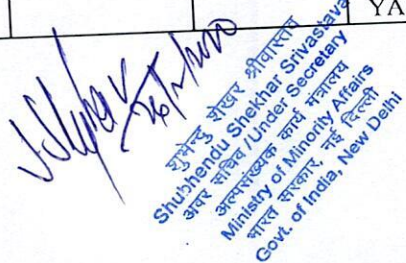 YA
शुभेन्दु शेखर श्रीवास्तव
Shubhendu Shekhar Srivastava
अवर सचिव /Under Secretary
अल्पसंख्यक कार्य मंत्रालय
Ministry of Minority Affairs
भारत सरकार, नई दिल्ली
Govt. of India, New Delhi